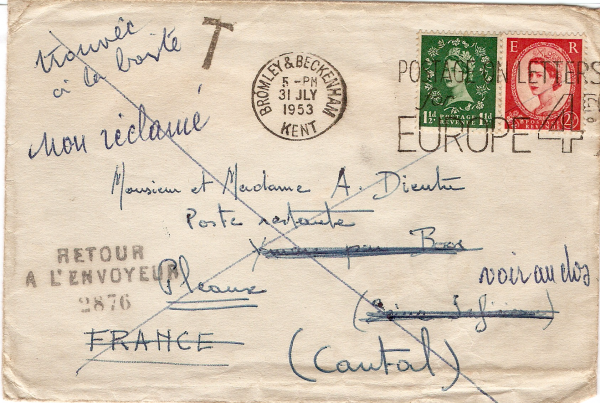 trouvée
à la boîte
T
non réclamé
BROMLEY & BECKENHAM
5 - PM
31 JLY
1953
KENT
POSTAGE ON LETTERS
EUROPE 4
E R
POSTAGE
REVENUE
1½ 1½
POSTAGE
REVENUE
2½
Monsieur et Madame A.
Poste restante
RETOUR
A L'ENVOYEUR
2876
Pleaux
voir au dos
FRANCE
(Cantal)